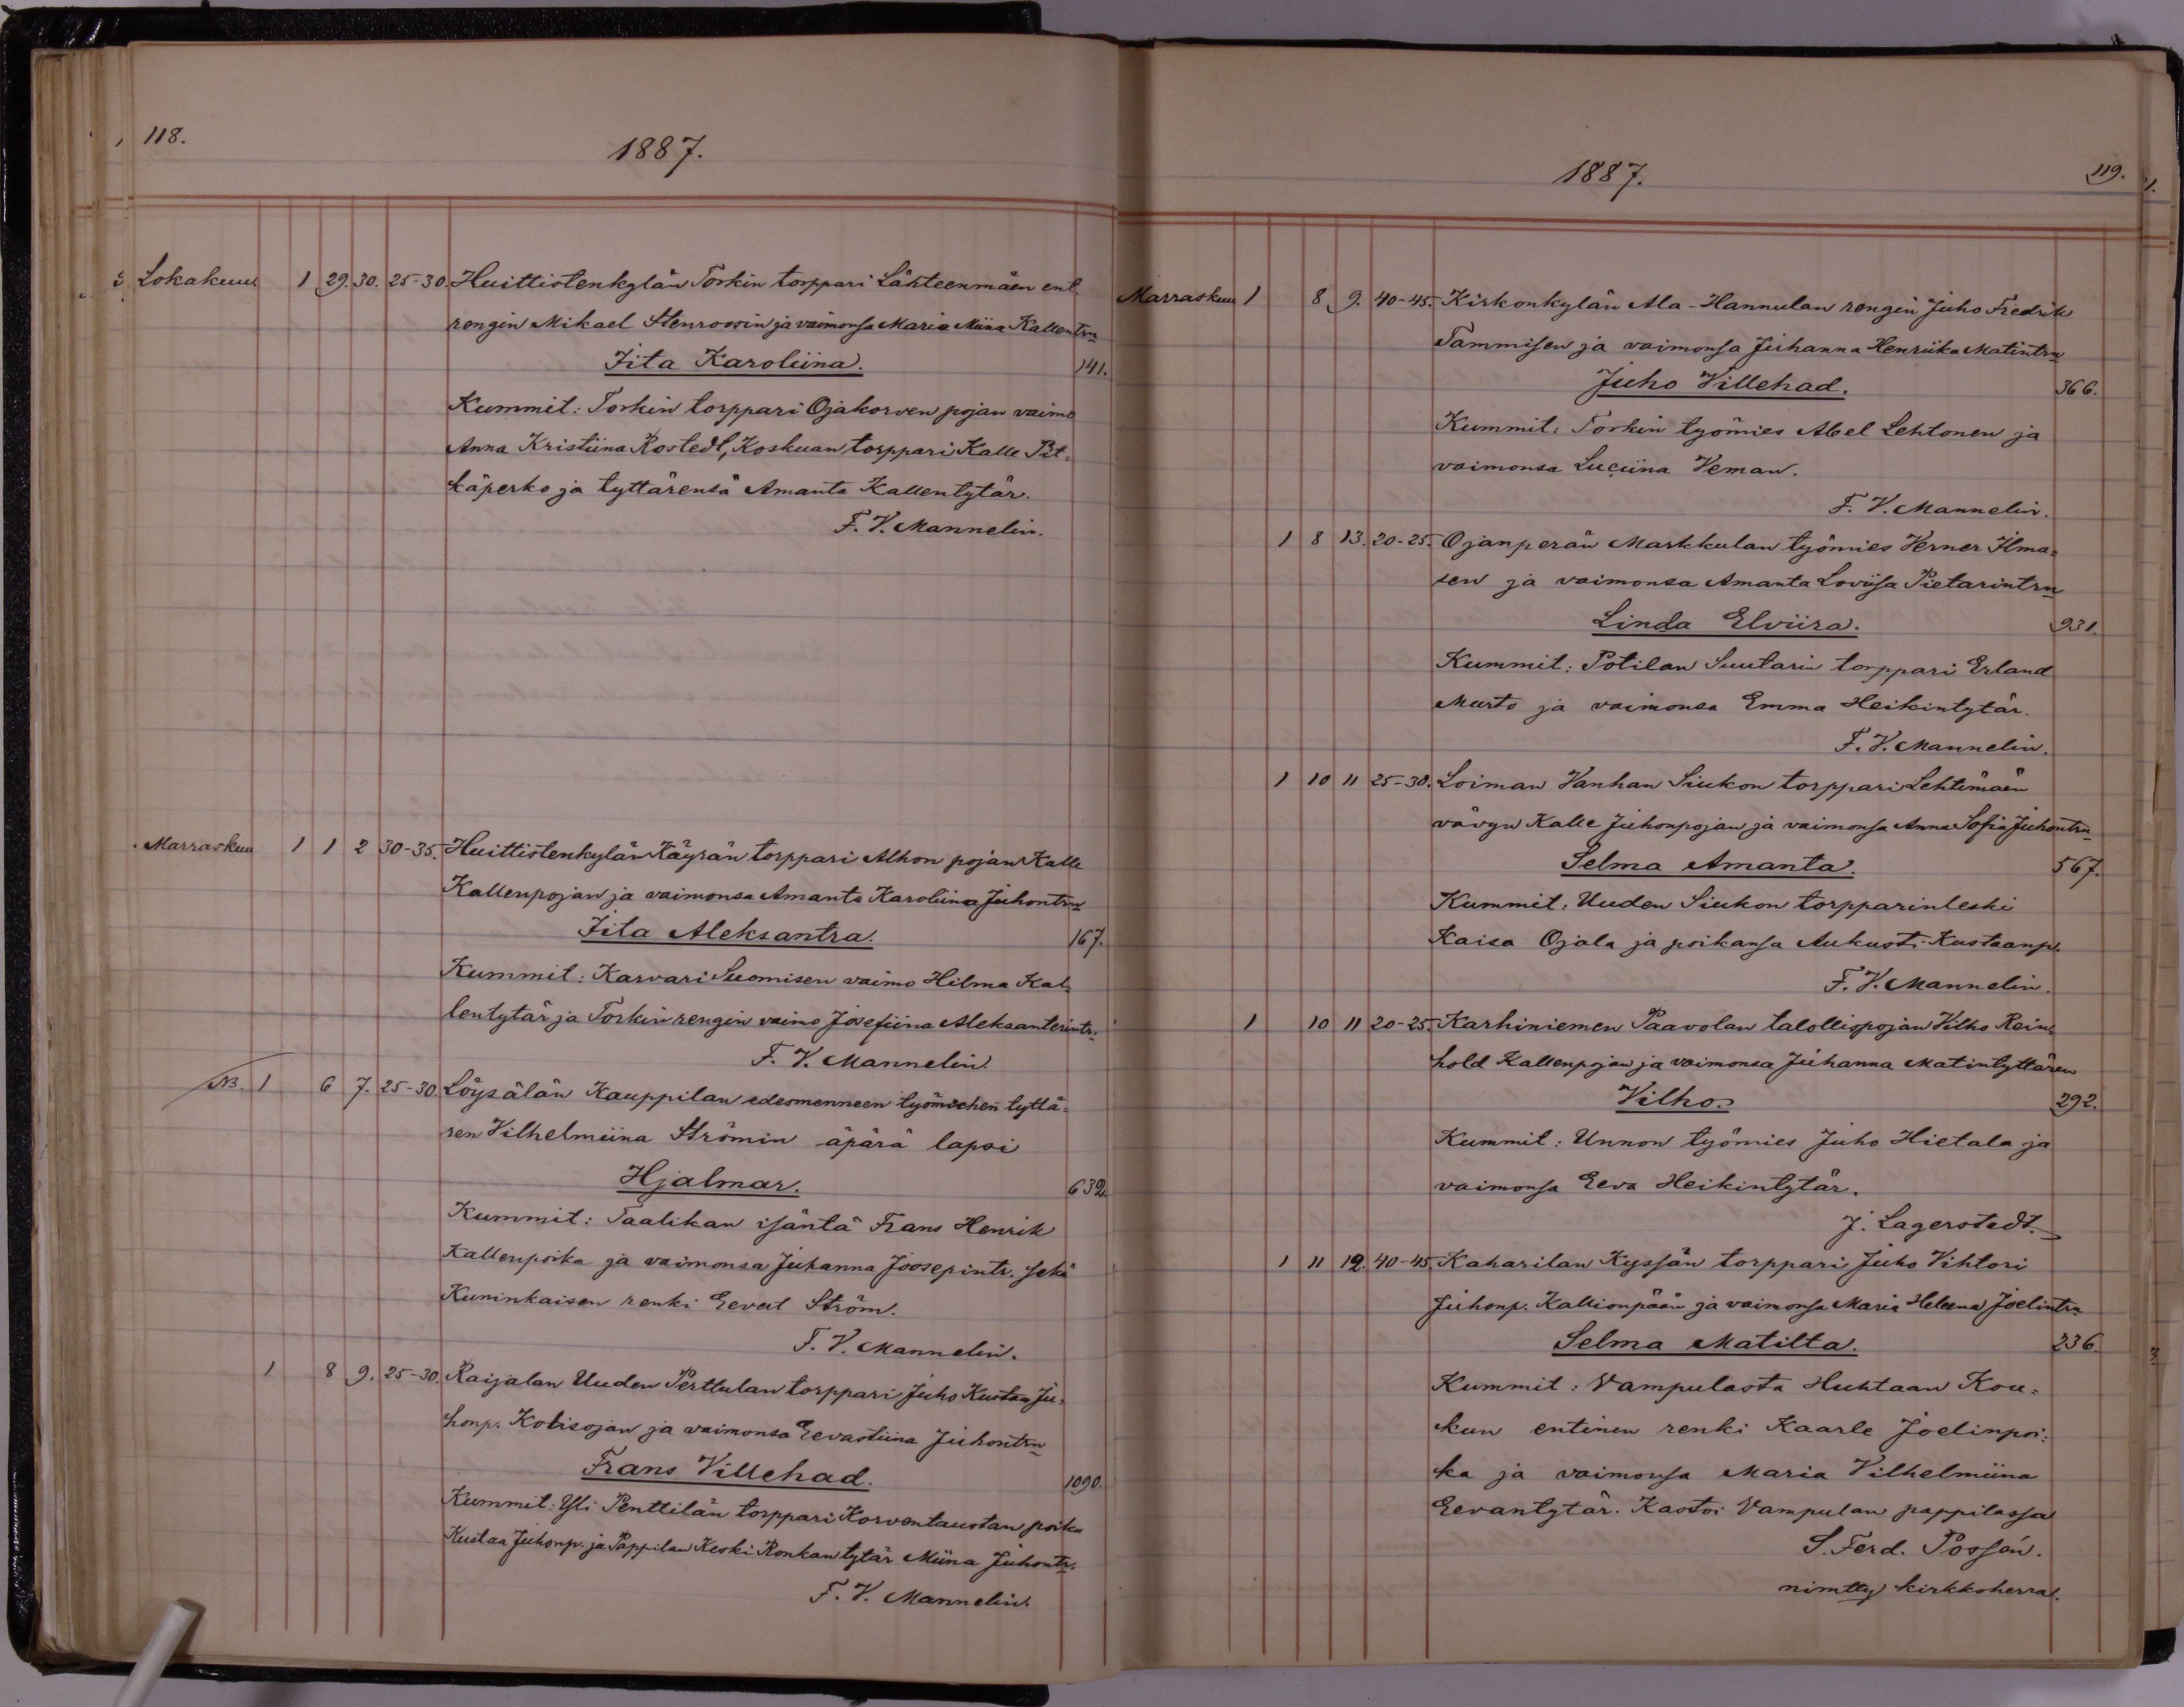 118.
1887.
Lokakuu 1 29. 30. 25-30. Huittistenkylän Torkin torppari Lähteenmäen ent.
rengin Mikael Stenroosin ja vaimonsa Maria Miina Kallentrn
Iita Karoliina. 141.
Kummit: Torkin torppari Ojakorven pojan vaimo
Anna Kristiina Rostedt, Koskuan torppari Kalle Pit-
käperko ja tyttärensä Amanta Kallentytär.
F. V. Mannelin.
Marraskuu 1 1 2 30-35. Huittistenkylän Käyrän torppari Alhon pojan Kalle
Kallenpojan ja vaimonsa Amanta Karoliina Juhontrn
Iita Aleksantra. 167.
Kummit: Karvari Suomisen vaimo Hilma Kal-
lentytär ja Torkin rengin vaimo Josefiina Aleksanterintr.
F. V. Mannelin.
NB. 1 6 7. 25-30. Löysälän Kauppilan edesmenneen työmiehen tyttä-
ren Vilhelmiina Strömin äpärä lapsi
Hjalmar. 632.
Kummit: Taalikan isäntä Frans Henrik
Kallenpoika ja vaimonsa Juhanna Joosepintr. sekä
Kuninkaisen renki Evert Ström.
F. V. Mannelin.
1 8 9. 25-30. Raijalan Uuden Perttulan torppari Juho Kustaa Ju-
honp. Kotisojan ja vaimonsa Eevastiina Juhontrn
Frans Villehad. 1090.
Kummit: Yli Penttilän torppari Korventaustan poika
Kustaa Juhonp. ja Pappilan Keski Ronkan tytär Miina Juhontr.
F. V. Mannelin.
1887.
119.
Marraskuu 1 8 9. 40-45. Kirkonkylän Ala-Hannulan rengin Juho Fredrik
Tammisen ja vaimonsa Juhanna Henriika Matintrn
Juho Villehad. 366.
Kummit: Torkin työmies Abel Lehtonen ja
vaimonsa Luciina Veman.
F. V. Mannelin.
1 8 13. 20-25. Ojanperän Markkulan työmies Verner Ilma-
sen ja vaimonsa Amanta Loviisa Pietarintrn
Linda Elviira. 931.
Kummit: Potilan Suutarin torppari Erland
Murto ja vaimonsa Emma Heikintytär.
F. V. Mannelin.
1 10 11 25-30. Loiman Vanhan Siukon torppari Lehtimäen
vävyn Kalle Juhonpojan ja vaimonsa Anna Sofia Juhontrn
Selma Amanta. 567.
Kummit: Uuden Siukon torpparinleski
Kaisa Ojala ja poikansa Aukusti Kustaanp.
F. V. Mannelin.
1 10 11 20-25. Karhiniemen Paavolan talollispojan Vilho Rein-
hold Kallenpojan ja vaimonsa Juhanna Matintyttären
Vilho. 292.
Kummit: Unnon työmies Juho Hietala ja
vaimonsa Eeva Heikintytär.
J. Lagerstedt.
1 11 12. 40-45. Kaharilan Kyssän torppari Juho Vihtori
Juhonp. Kallionpään ja vaimonsa Maria Heleena Joelintrn
Selma Matilta. 236.
Kummit: Vampulasta Huhtaan Kou-
kun entinen renki Kaarle Joelinpoi-
ka ja vaimonsa Maria Vilhelmiina
Eevantytär. Kastoi Vampulan pappilassa
S. Ferd. Possén.
nimtty kirkkoherra.